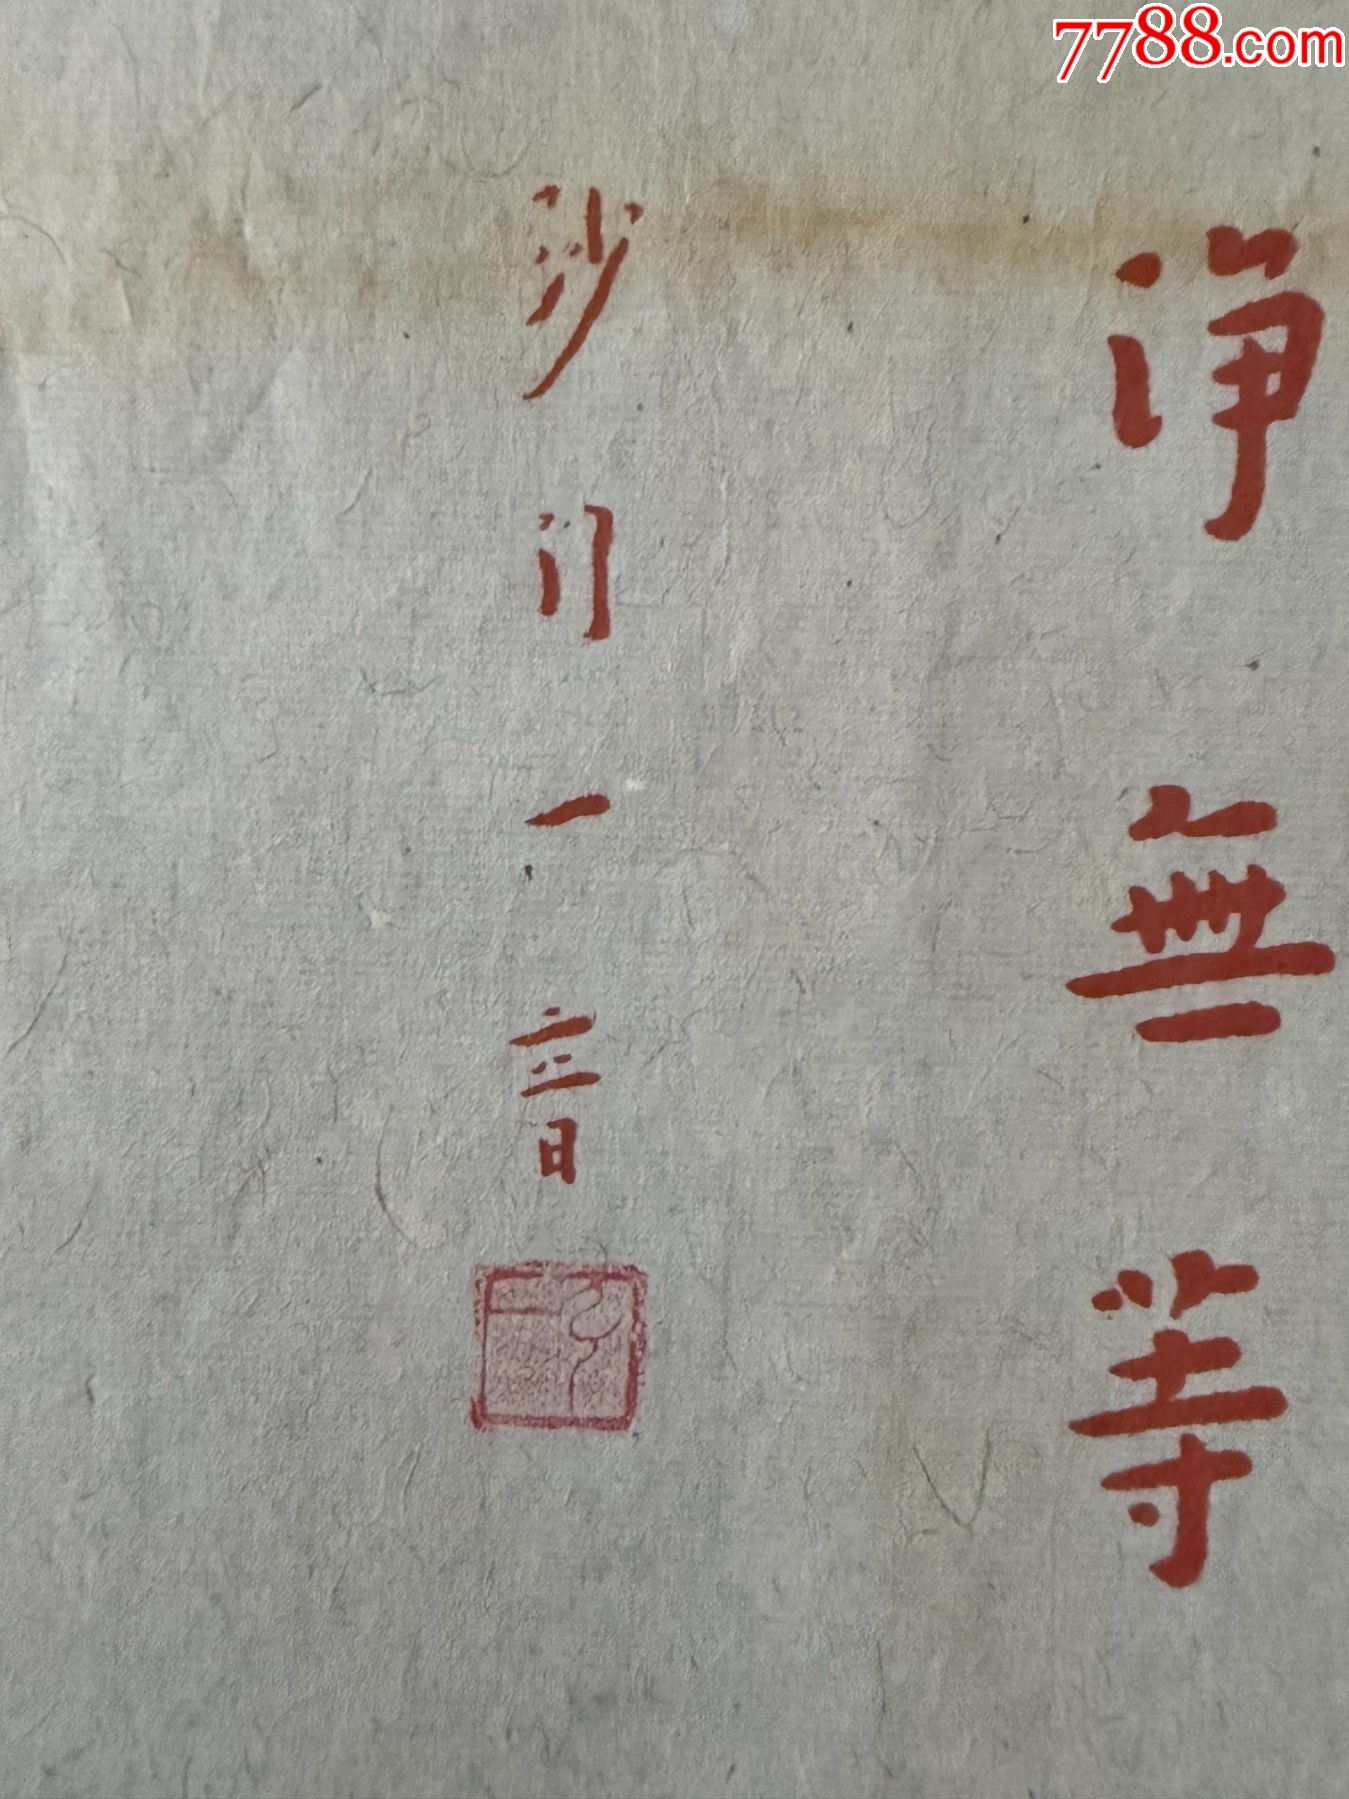 7788.com
净無等
沙門一音